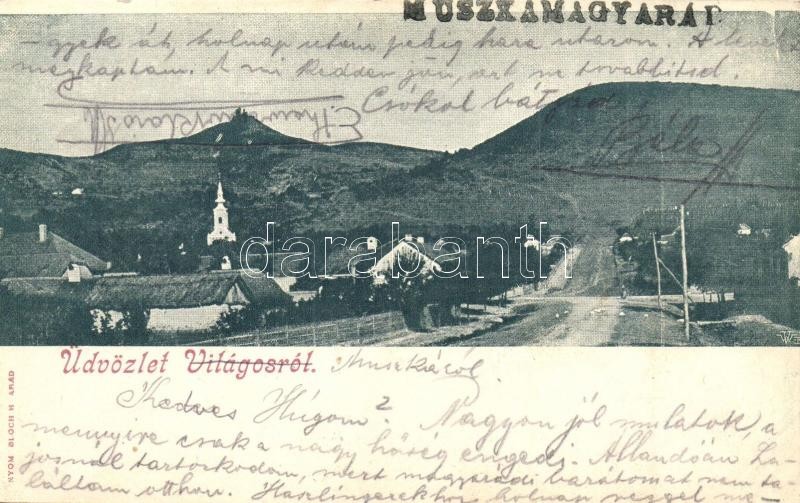 MUSZKAMAGYARÁD
- gyek át, holnap után pedig haza utazom. A
megkaptam. A mi kedden jön, azt ne továbbítsd.
Csókol bátyád
Béla
darabanth.com
Üdvözlet Világosról. Muszkáról
Kedves Húgom? Nagyon jól mulatok, a
mennyire csak a nagy hőség engedi. Állandóan La-
josnál tartózkodom, mert magyarádi barátomat nem ta-
láltam otthon. holnap reggel me-
NYOM BLOCH H ARAD